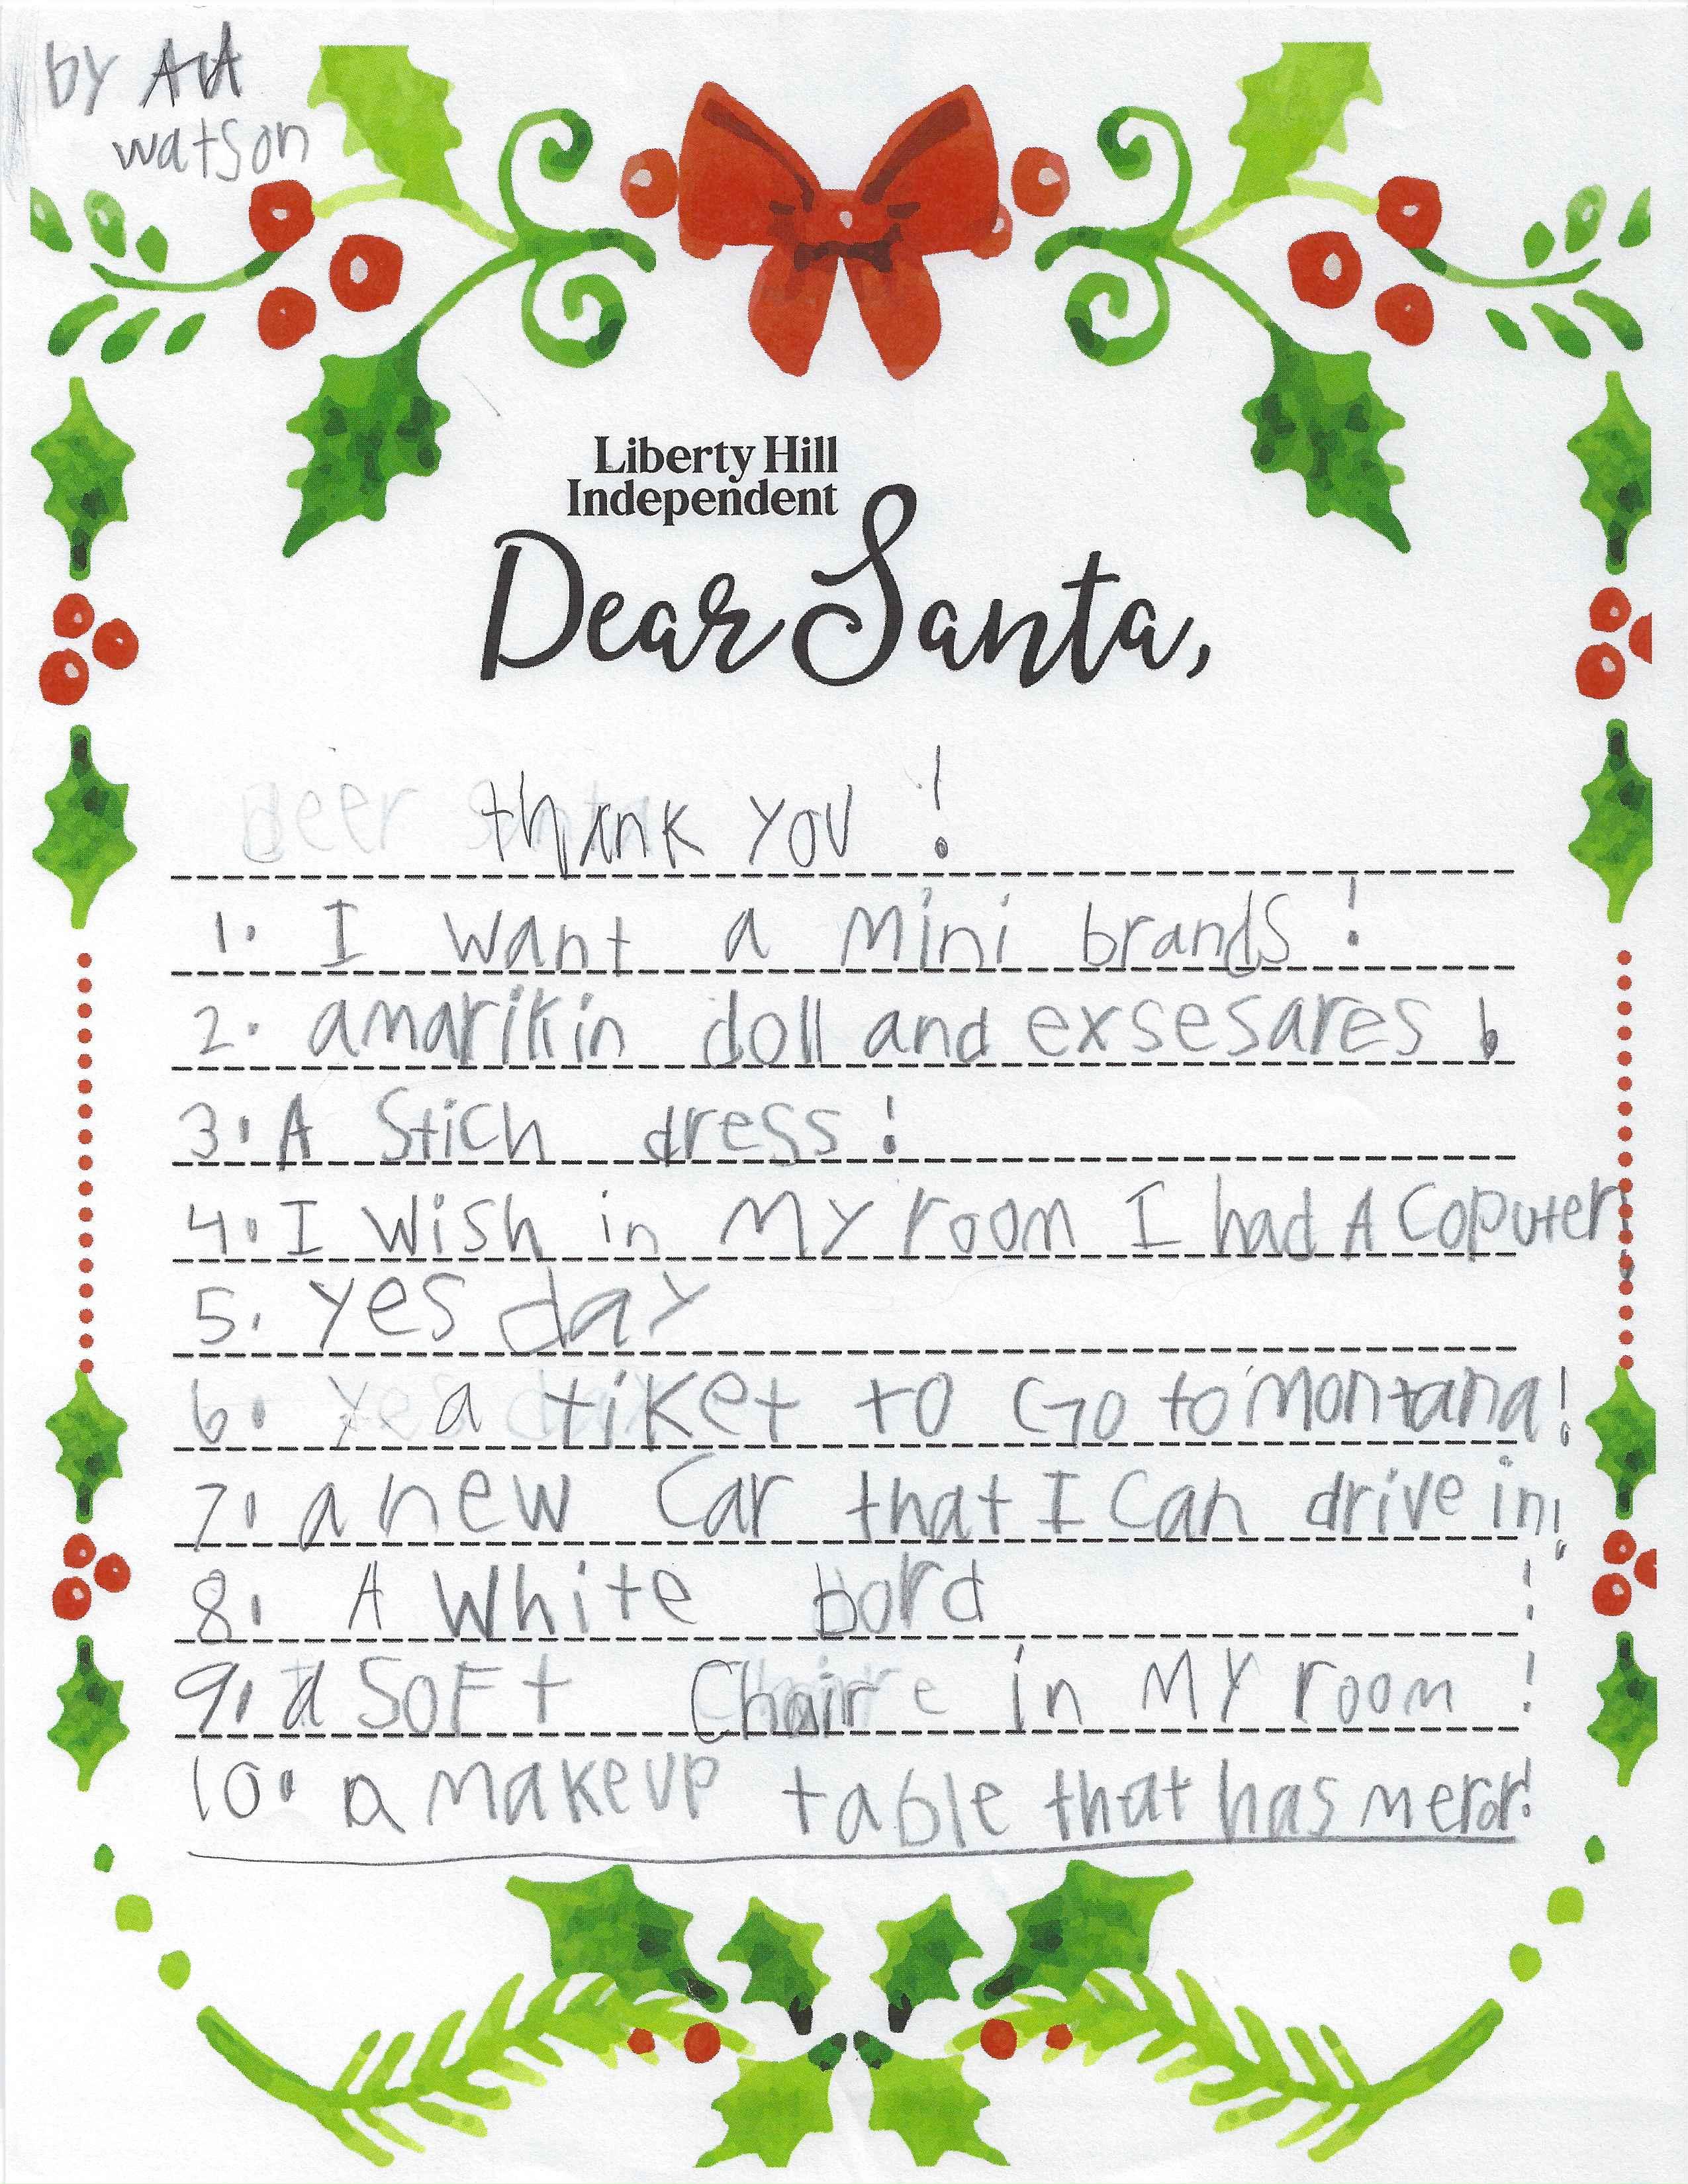 by
watson
Liberty Hill
Independent
Dear Santa,
thank you !
1. I want a mini brands !
2. amarikin doll and exsesares !
3. A Stich dress !
4. I wish in My room I had A Coputer!
5. yes day
6. a tiket to Go to montana!
7. a new Car that I Can drive in!
8. A White bord !
9. a SoFt Chair in MY room !
10. a makeup table that has meror!